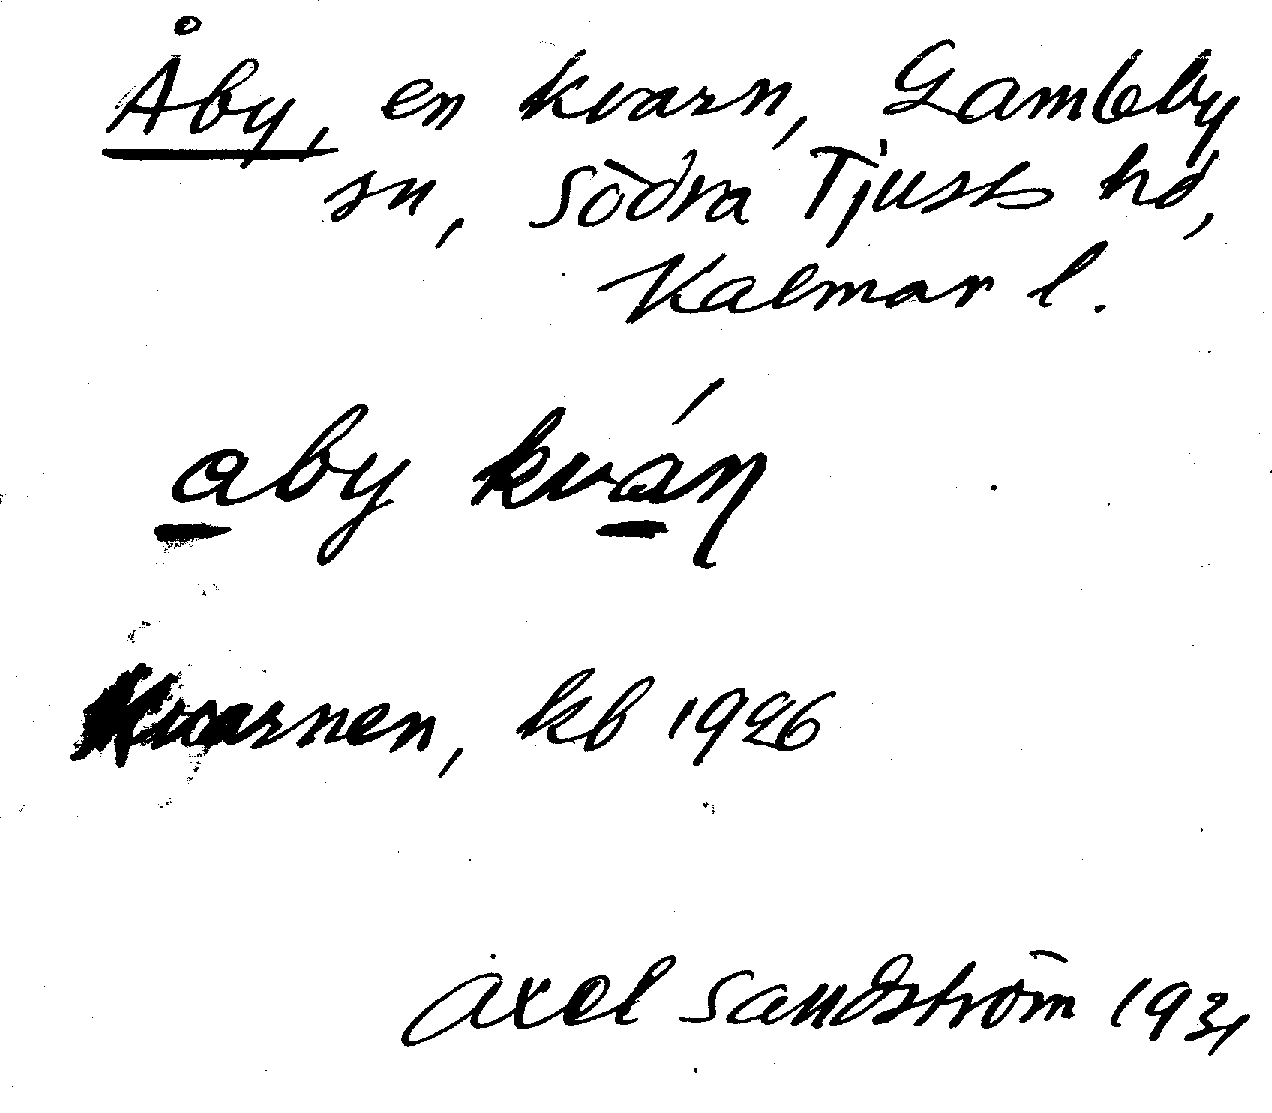 Åby, en kvarn, Gamleby
sn, Södra Tjusts hd,
Kalmar l.
a̲by kvá̲ɳ
Kvarnen, kb 1926
Axel Sandström 1931